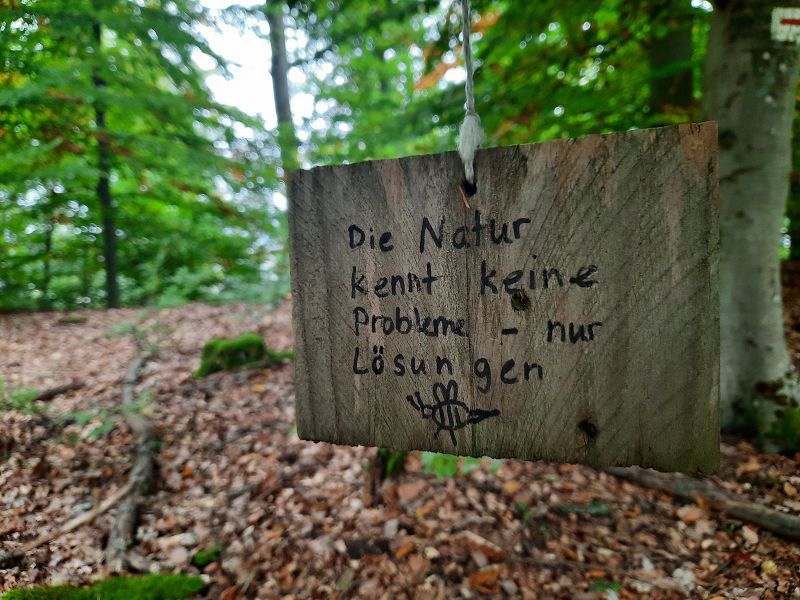 Die Natur
kennt keine
Probleme - nur
Lösungen